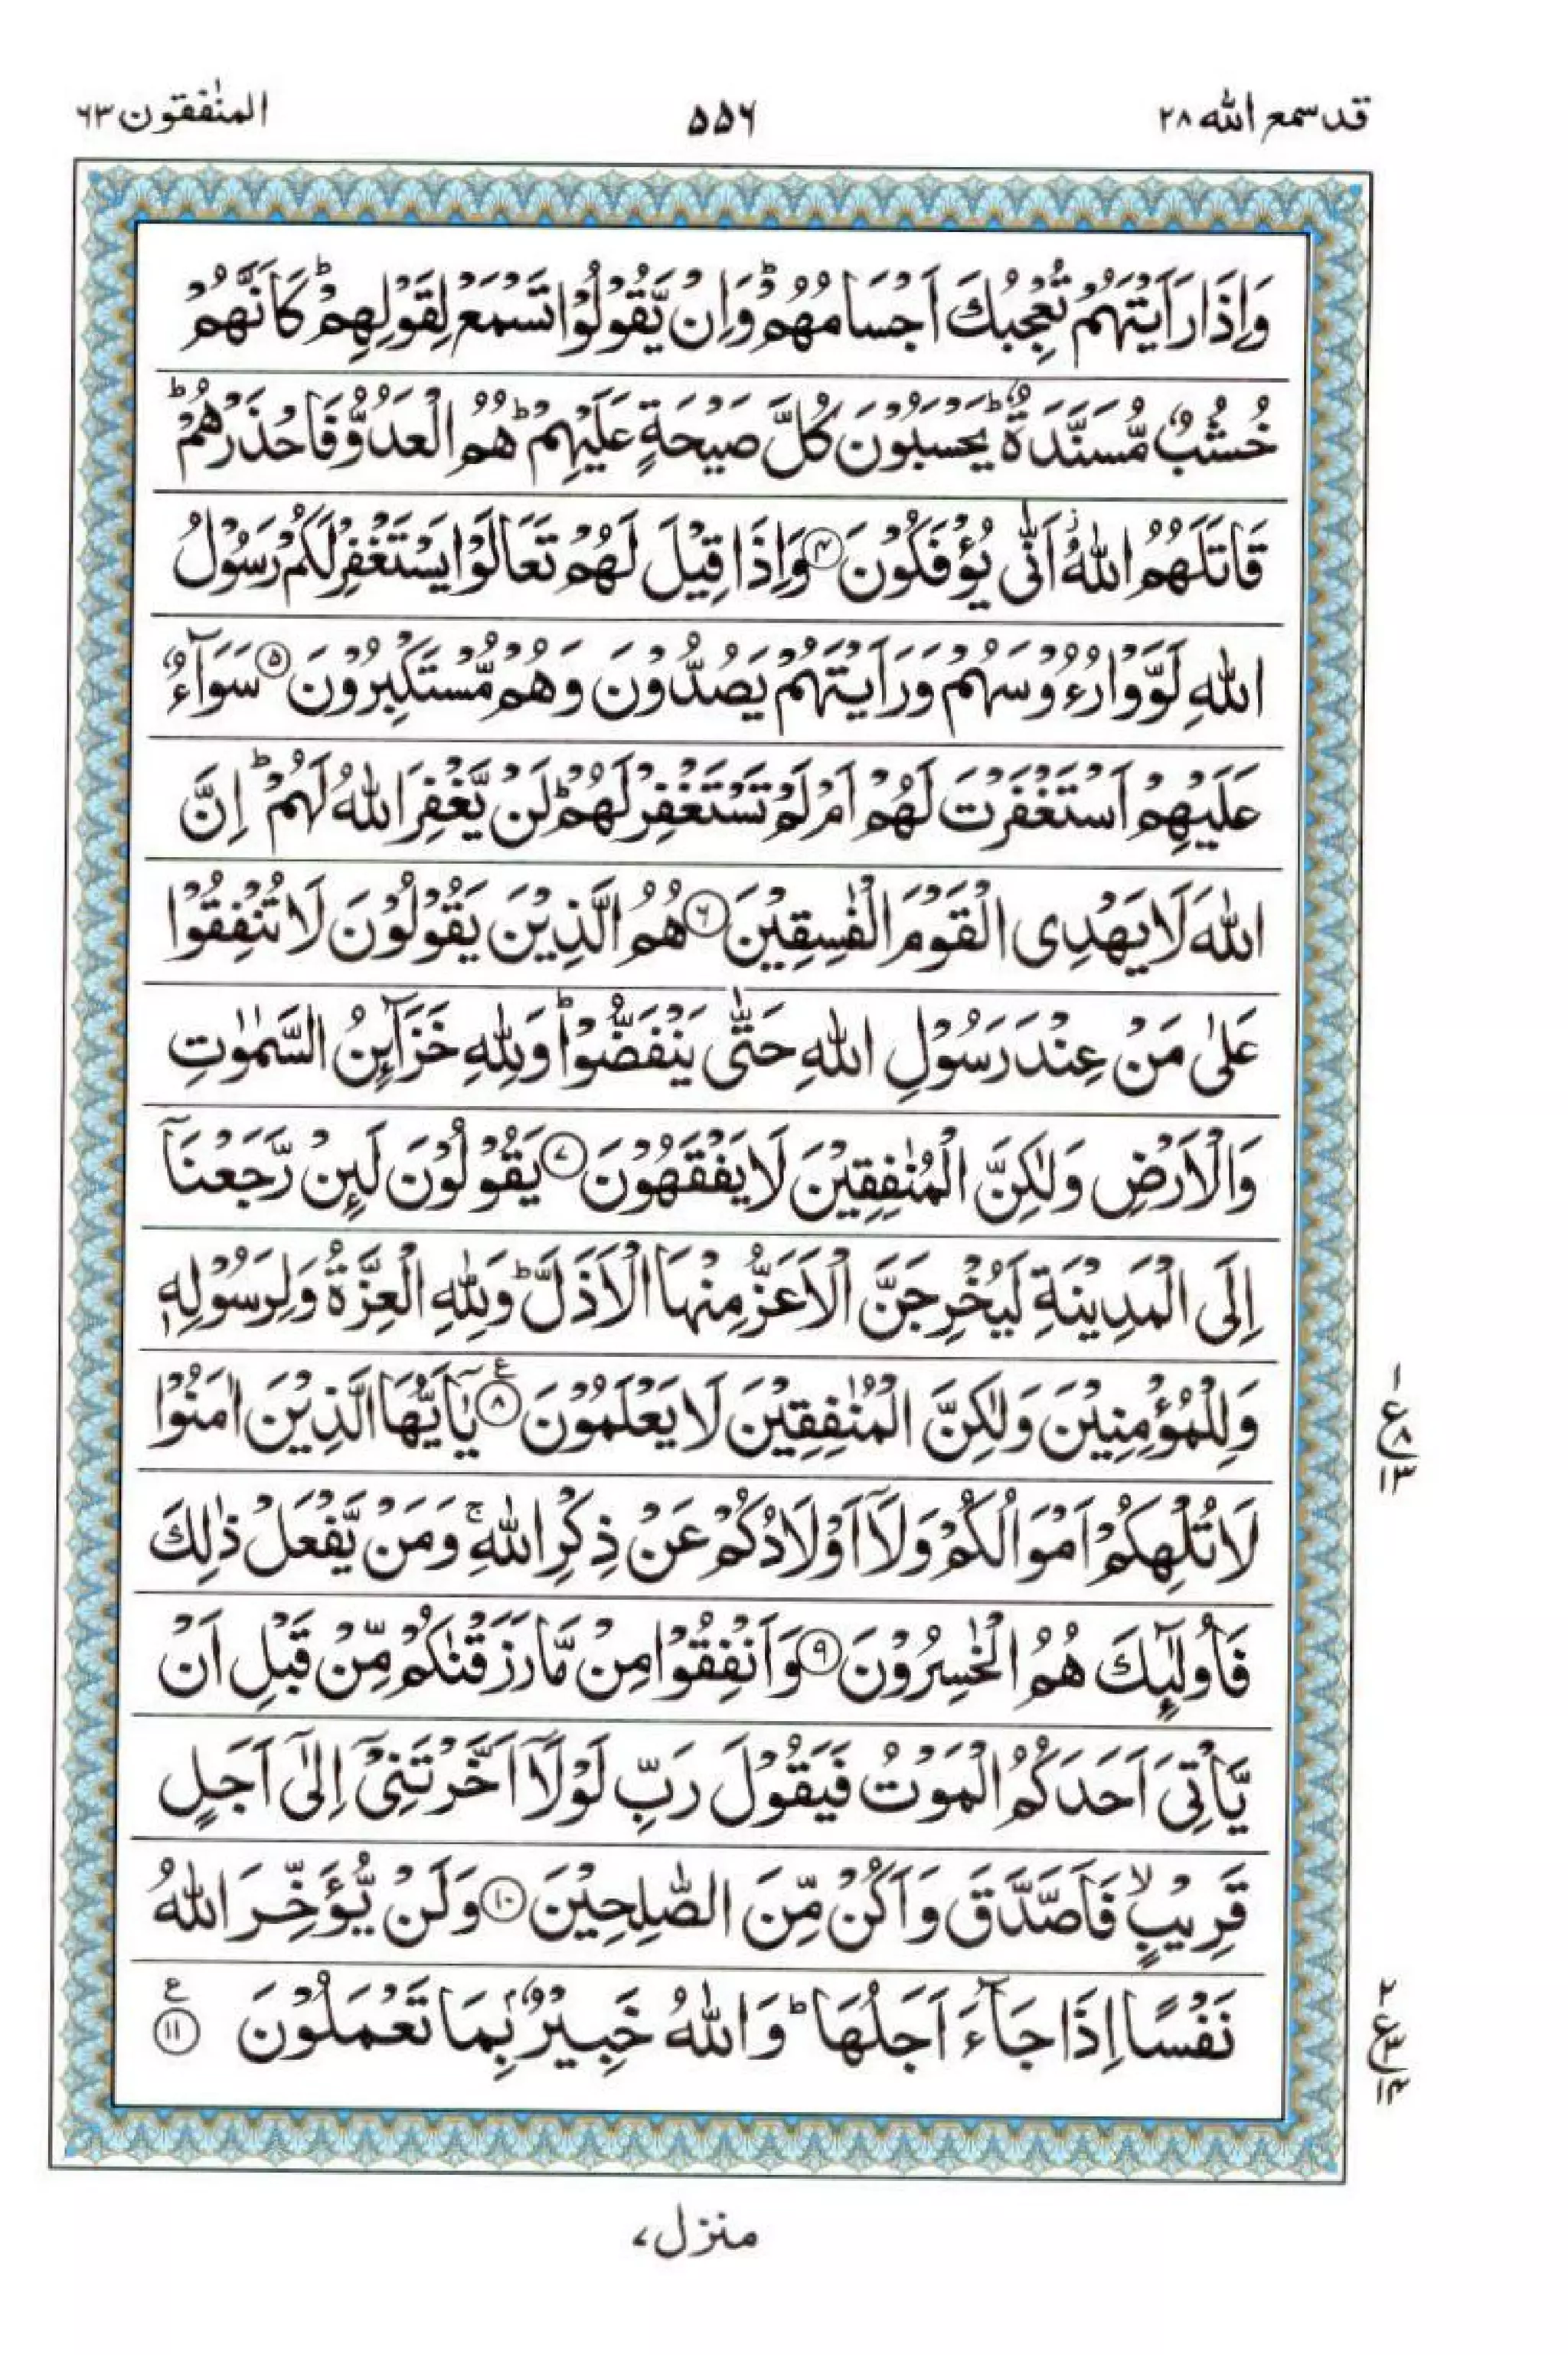 قد سمع الله ۲۸
۵۵۶
المنٰفقون ۶۳
وَاِذَا رَاَيْتَهُمْ تُعْجِبُكَ اَجْسَامُهُمْ ؕ وَاِنْ يَّقُوْلُوْا تَسْمَعْ لِقَوْلِهِمْ ؕ كَاَنَّهُمْ
خُشُبٌ مُّسَنَّدَةٌ ؕ يَحْسَبُوْنَ كُلَّ صَيْحَةٍ عَلَيْهِمْ ؕ هُمُ الْعَدُوُّ فَاحْذَرْهُمْ ؕ
قَاتَلَهُمُ اللّٰهُ ؗ اَنّٰى يُؤْفَكُوْنَ ۴ وَاِذَا قِيْلَ لَهُمْ تَعَالَوْا يَسْتَغْفِرْ لَكُمْ رَسُوْلُ
اللّٰهِ لَوَّوْا رُءُوْسَهُمْ وَرَاَيْتَهُمْ يَصُدُّوْنَ وَهُمْ مُّسْتَكْبِرُوْنَ ۵ سَوَآءٌ
عَلَيْهِمْ اَسْتَغْفَرْتَ لَهُمْ اَمْ لَمْ تَسْتَغْفِرْ لَهُمْ ؕ لَنْ يَّغْفِرَ اللّٰهُ لَهُمْ ؕ اِنَّ
اللّٰهَ لَا يَهْدِى الْقَوْمَ الْفٰسِقِيْنَ ۶ هُمُ الَّذِيْنَ يَقُوْلُوْنَ لَا تُنْفِقُوْا
عَلٰى مَنْ عِنْدَ رَسُوْلِ اللّٰهِ حَتّٰى يَنْفَضُّوْا ؕ وَلِلّٰهِ خَزَآئِنُ السَّمٰوٰتِ
وَالْاَرْضِ وَلٰكِنَّ الْمُنٰفِقِيْنَ لَا يَفْقَهُوْنَ ۷ يَقُوْلُوْنَ لَئِنْ رَّجَعْنَاۤ
اِلَى الْمَدِيْنَةِ لَيُخْرِجَنَّ الْاَعَزُّ مِنْهَا الْاَذَلَّ ؕ وَلِلّٰهِ الْعِزَّةُ وَلِرَسُوْلِهٖ
وَلِلْمُؤْمِنِيْنَ وَلٰكِنَّ الْمُنٰفِقِيْنَ لَا يَعْلَمُوْنَ ۸ ع يٰۤاَيُّهَا الَّذِيْنَ اٰمَنُوْا
۱
ع ۸
۱۳
لَا تُلْهِكُمْ اَمْوَالُكُمْ وَلَاۤ اَوْلَادُكُمْ عَنْ ذِكْرِ اللّٰهِ ۚ وَمَنْ يَّفْعَلْ ذٰلِكَ
فَاُولٰٓئِكَ هُمُ الْخٰسِرُوْنَ ۹ وَاَنْفِقُوْا مِنْ مَّا رَزَقْنٰكُمْ مِّنْ قَبْلِ اَنْ
يَّاْتِىَ اَحَدَكُمُ الْمَوْتُ فَيَقُوْلَ رَبِّ لَوْلَاۤ اَخَّرْتَنِىْۤ اِلٰٓى اَجَلٍ
قَرِيْبٍ ۙ فَاَصَّدَّقَ وَاَكُنْ مِّنَ الصّٰلِحِيْنَ ۱۰ وَلَنْ يُّؤَخِّرَ اللّٰهُ
نَفْسًا اِذَا جَآءَ اَجَلُهَا ؕ وَاللّٰهُ خَبِيْرٌۢ بِمَا تَعْمَلُوْنَ ۱۱ ع
۲
ع ۳
۱۴
منزل ۷